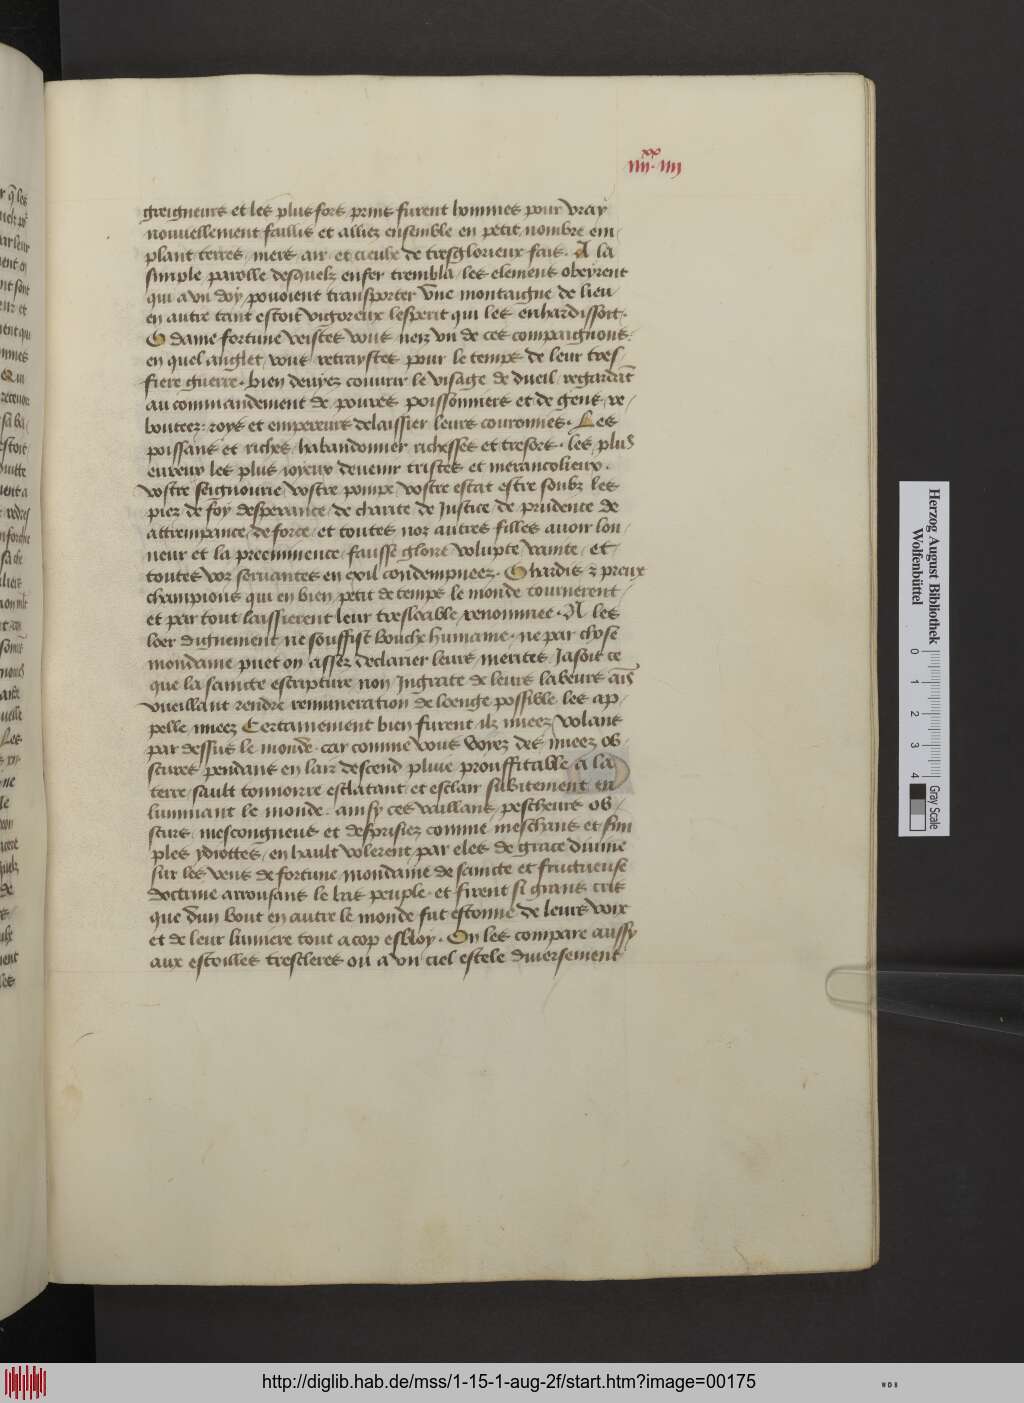 xx
iiii. iiii
greigneurs et les plus fors prins furent hommes pour vray
nouvellement faillis et alliez ensemble en petit nombre em
plant terres / mers air et cieulx de tresglorieux fais. A la
simple parolle desquelz enfer trembla / les elemens obeyrent
qui a un doy / povoient transporter une montaigne de lieu
en autre tant estoit vigoreux lesperit qui les enhardissoit.
O dame fortune veistes vous nez un de ces compaignons
en quel anglet / vous retraystes pour le temps de leur tres
fiere guerre. bien deviez couvrir le visage de dueil / regardãt
au commandement de povres poissonniers et de gens re
boutez: roys et empereurs delaissier leurs couronnes. Les
poissans et riches / habandonner richesses et tresors. les plus
eureux les plus joyeux devenir tristes et merancolieux.
vostre seignourie / vostre pompe / vostre estat estre soubz les
piez de foy desperance / de charite de Justice / de prudence de
attrempance / de force / et toutes noz autres filles avoir lon
neur et la preeminence / fausse gloire volupte / vainte / et
toutes voz servantes en exil condempneez. O hardis z preux
champions qui en bien petit de temps le monde tournerent /
et par tout laissierent leur tresloable / renommee. A les
loer dignement ne souffist bouche humaine. ne par chose
mondaine puet on assez declarier leurs merites Jasoit ce
que la saincte escripture non Jngrate de leurs labeurs ais
vueillant rendre remuneration de loenge possible les ap
pelle nueez Certainement bien furent ilz nueez volans
par dessus le monde. car comme vous voyez des nueez ob
scures pendans en lair descend pluie prouffitable / a la
terre / sault tonnoirre esclatant et esclair subitement en
luminant le monde. ainsy ces vaillans / pescheurs ob
scurs / mescongneus et desprisiez comme meschans et sim
ples ydiottes / en hault volerent / par eles de grace divine
sur les vens de fortune / mondaine de saincte et fructueuse
doctrine arrousans le bas peuple. et firent si grans cris
que dun bout en autre le monde fut estonne de leurs voix
et de leur lumiere tout a cop esbloy. On les compare aussy
aux estoilles trescleres ou a un ciel estele diversement
Herzog August Bibliothek
Wolfenbüttel
0 1 2 3 4
Gray Scale
http://diglib.hab.de/mss/1-15-1-aug-2f/start.htm?image=00175
WDB